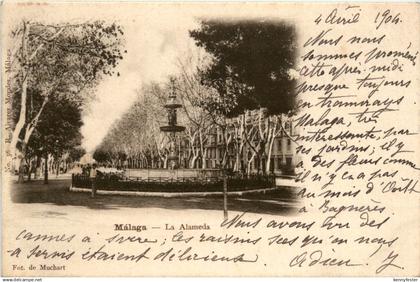 4 Avril 1904.
Nous nous
sommes promenés
cette après-midi
presque toujours
en tramways
Malaga, très
intéressante, par
ses jardins; il y
a des fleurs comme
il n'y a pas
au mois d'Août
à Bagnères
Nous avons vu des
cannes à sucre; les raisins secs que nous
a servis étaient délicieux
Adieu
Málaga — La Alameda
Fot. de Muchart
No 36 - R. Alvarez Morales - Málaga